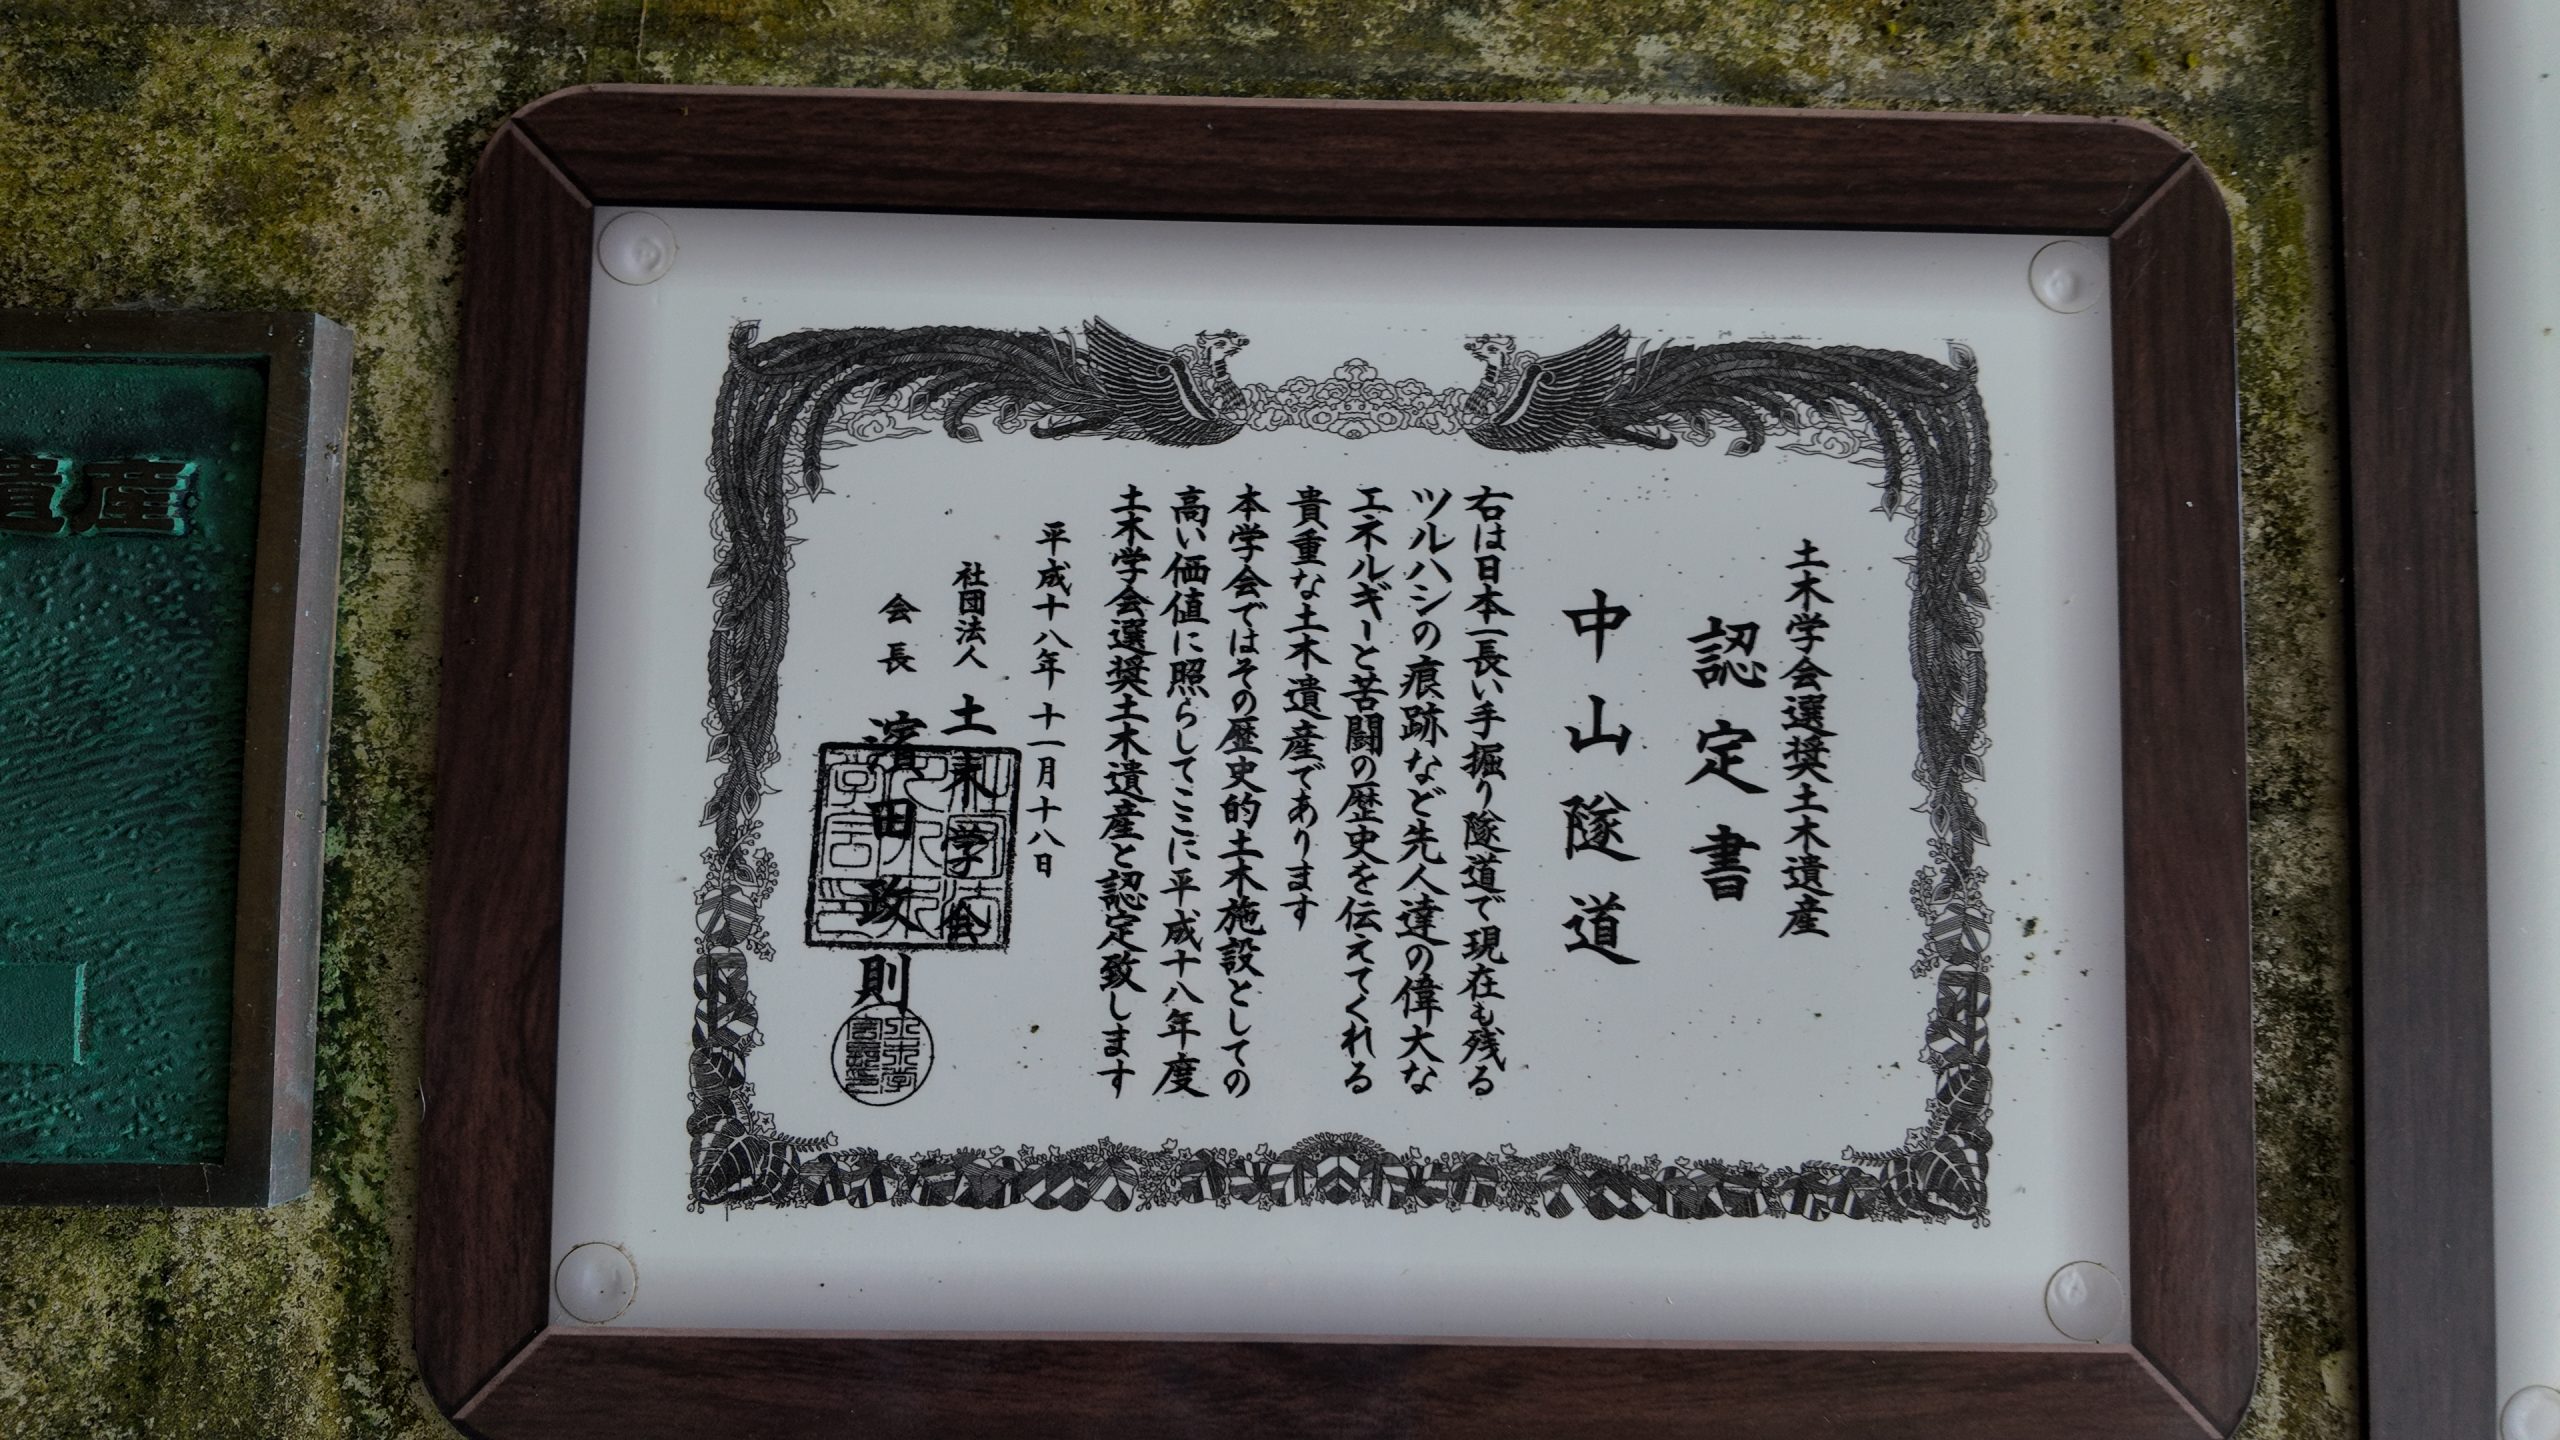 土木学会選奨土木遺産
認定書
中山隧道
右は日本一長い手掘り隧道で現在も残る
ツルハシの痕跡など先人達の偉大な
エネルギーと苦闘の歴史を伝えてくれる
貴重な土木遺産であります
本学会ではその歴史的土木施設としての
高い価値に照らしてここに平成十八年度
土木学会選奨土木遺産と認定致します
平成十八年十一月十八日
社団法人 土木学会
会長 濱田政則
遺産